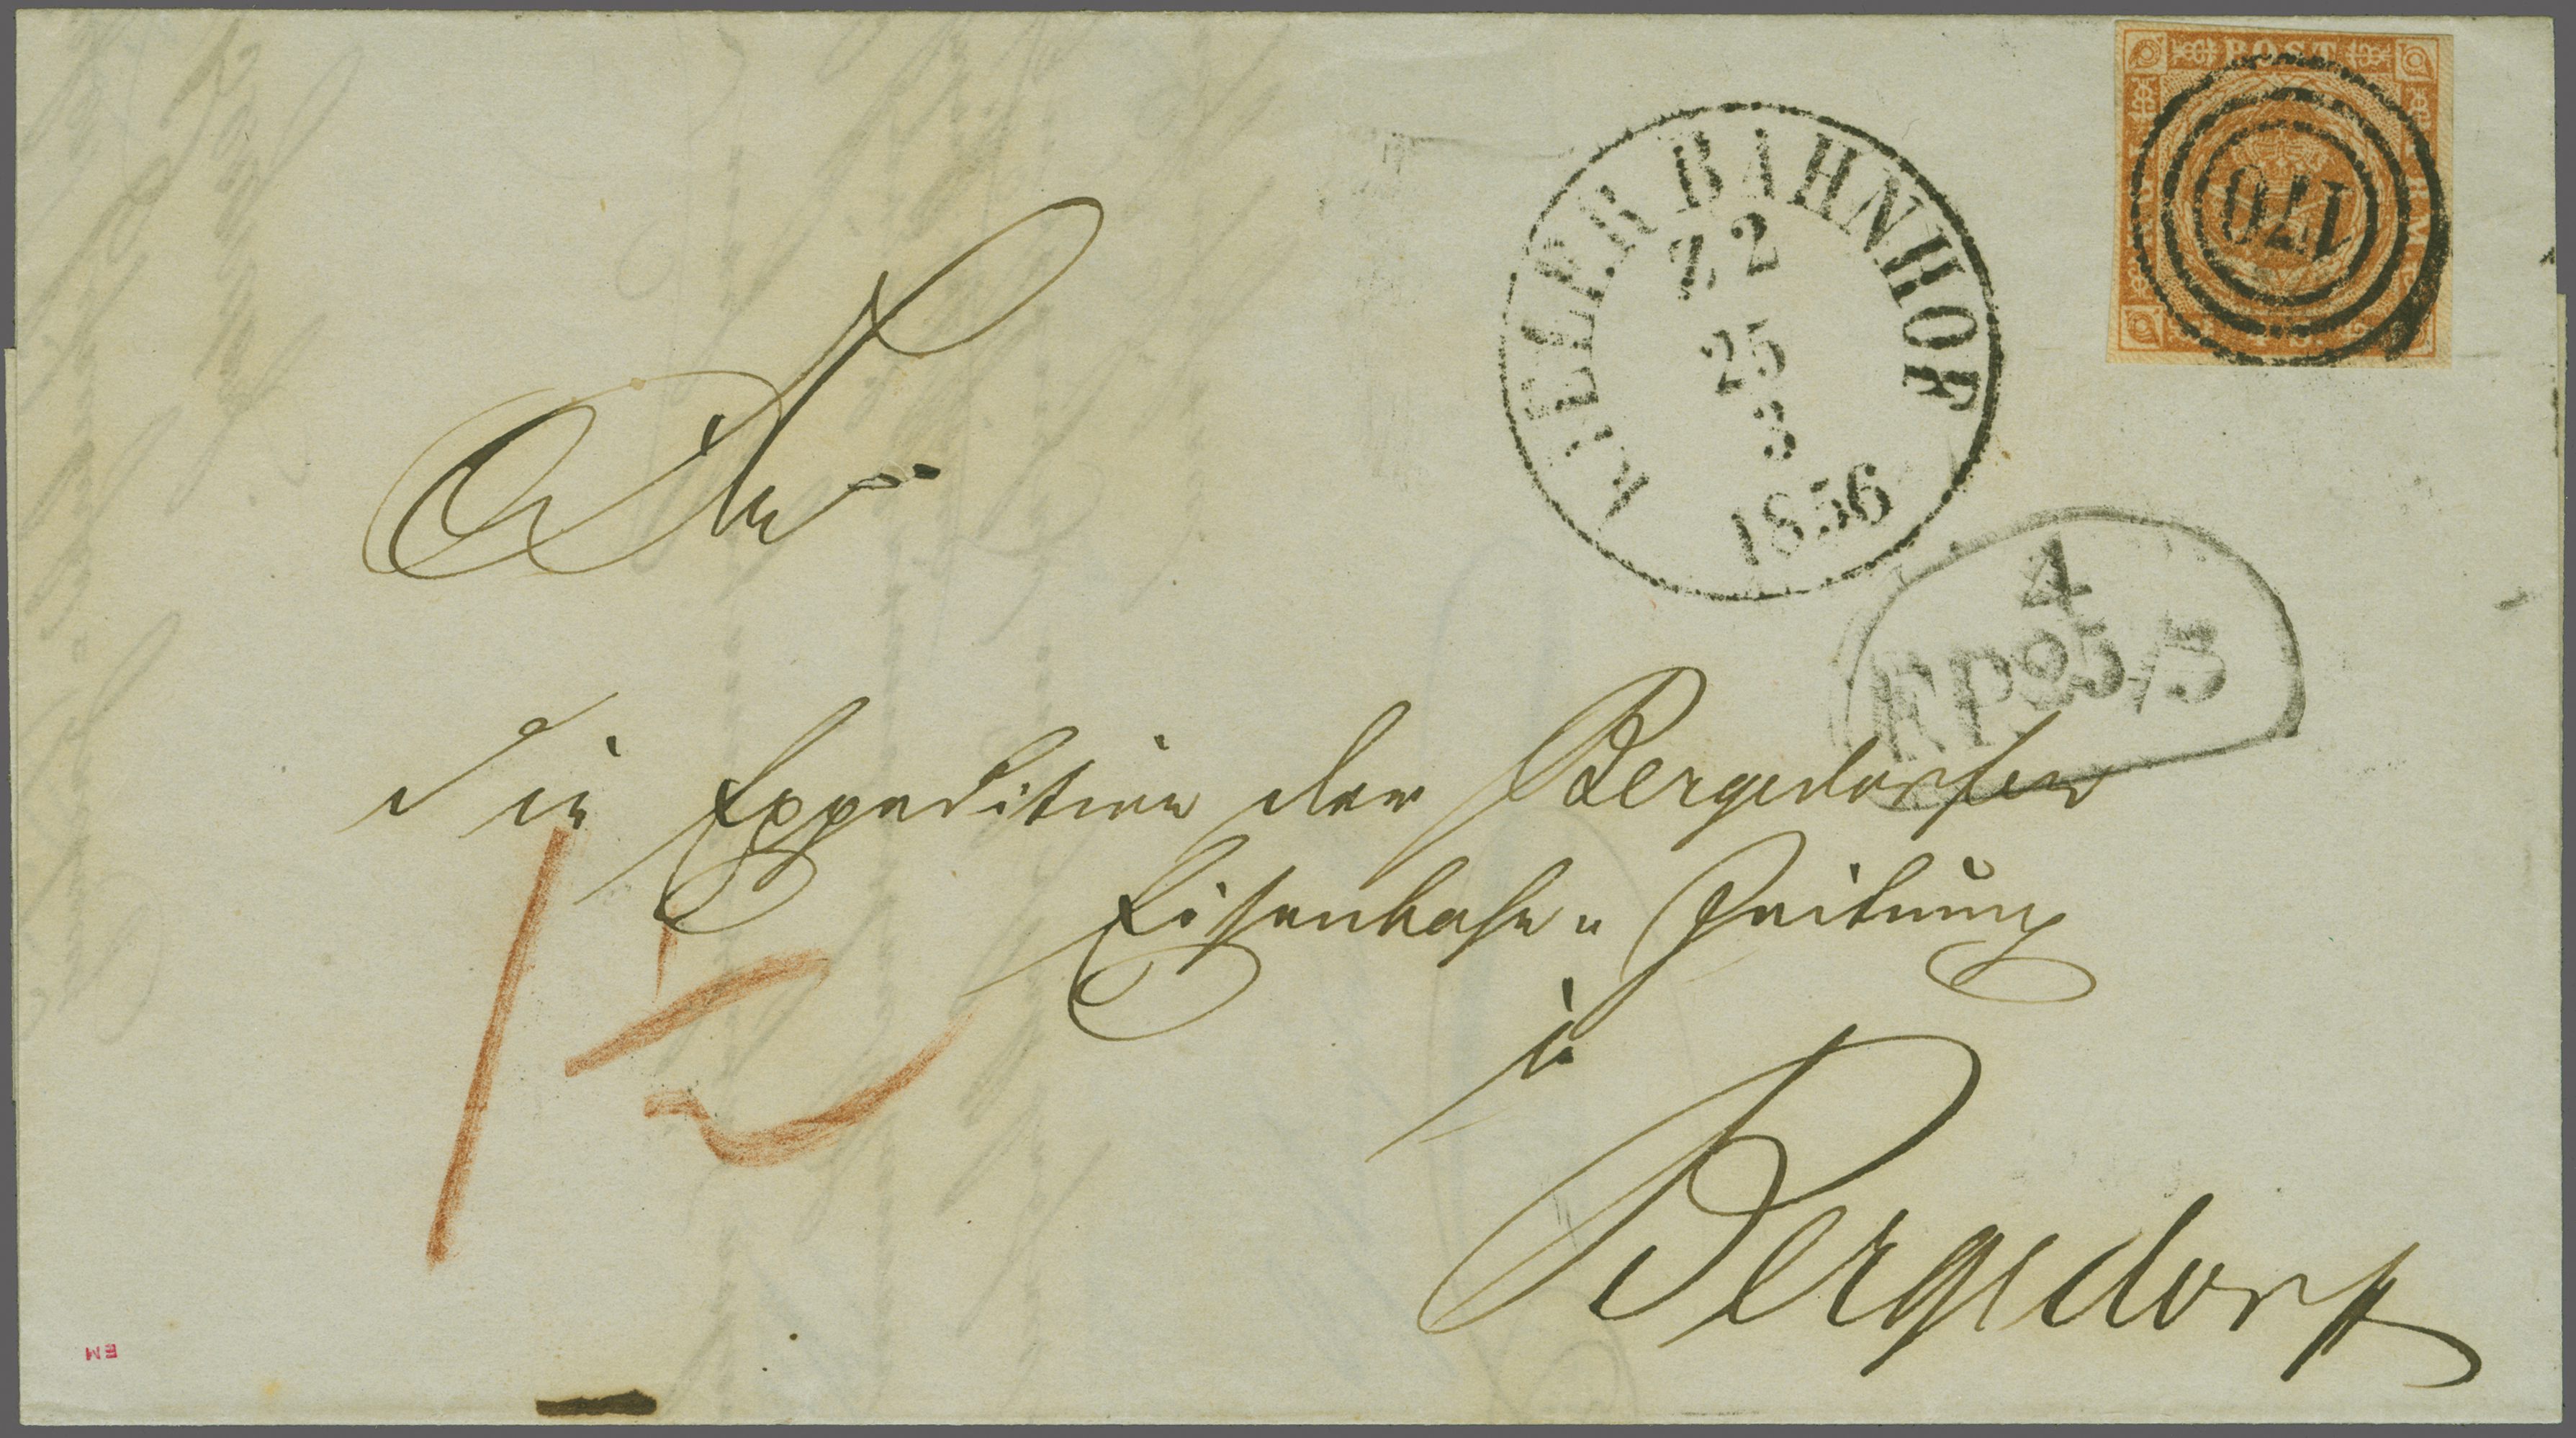 POST
170
KIELER BAHNHOF
Z 2
25
3
1856
4
RP 25/3
An
die Expedition der Bergedorfer
Eisenbahn-Zeitung
in
Bergedorf
EM